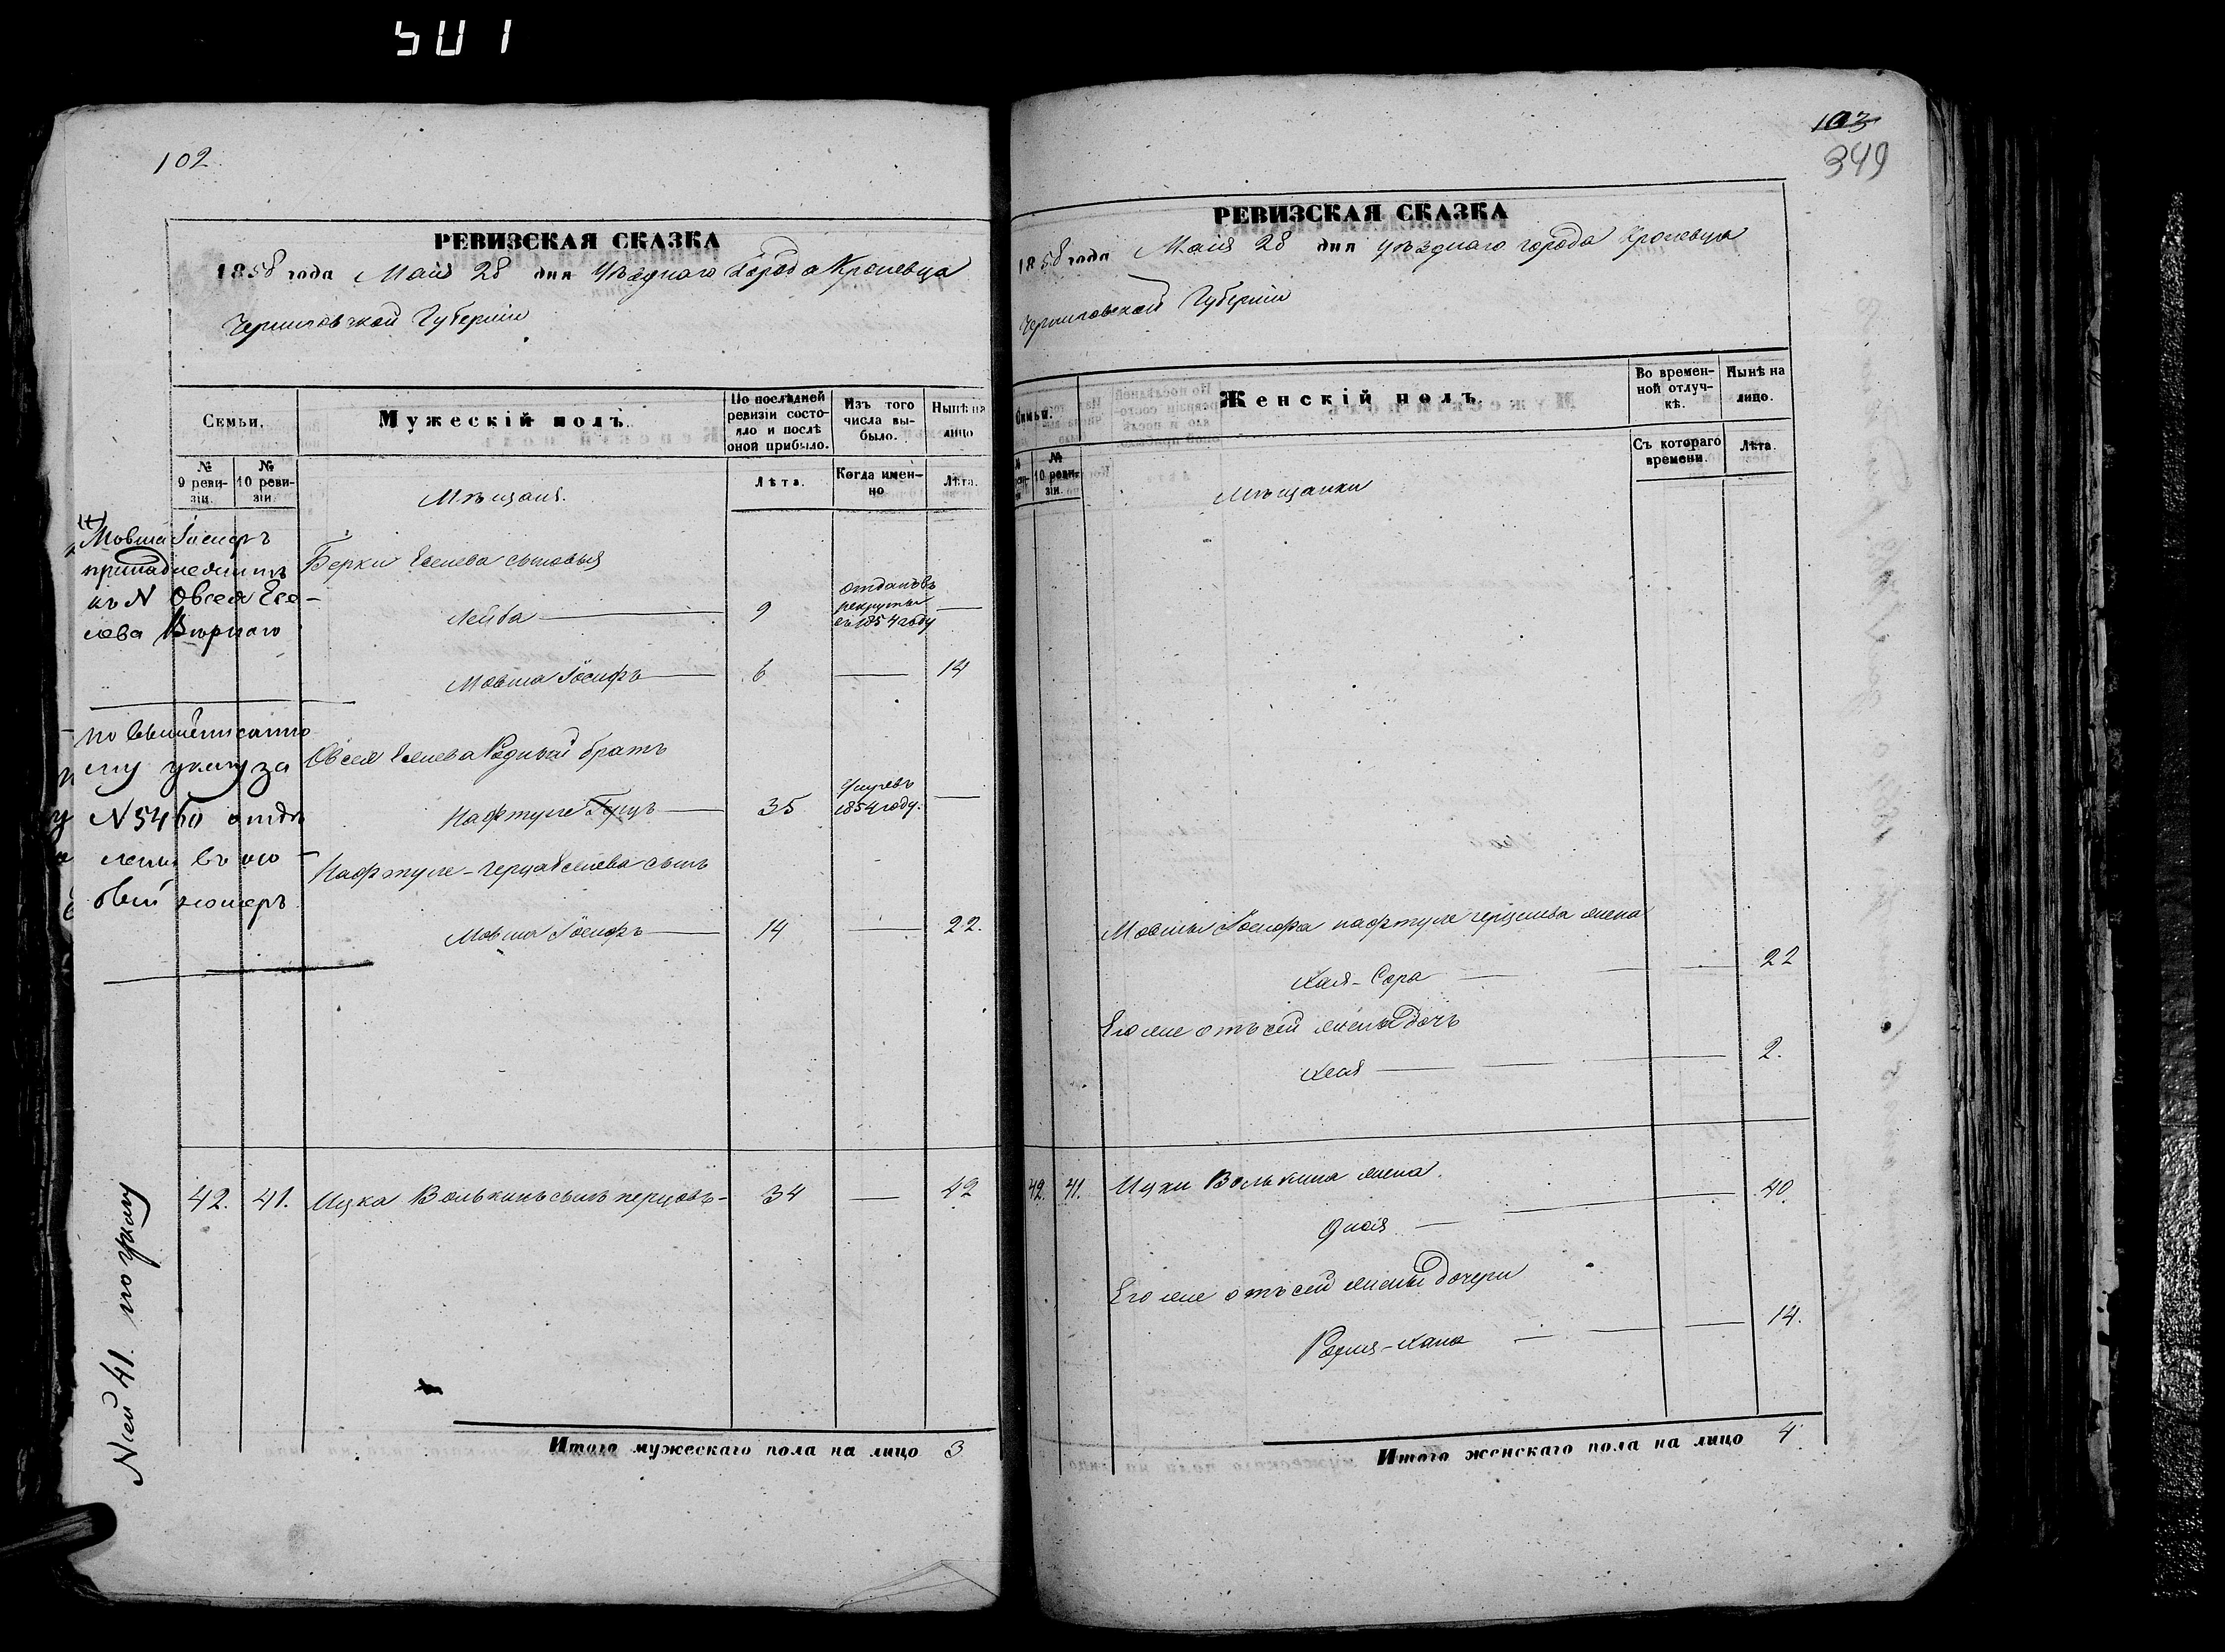 501
102
РЕВИЗСКАЯ СКАЗКА
1858 года Маія 28 дня уѣзднаго города Кролевца
Черниговской Губерніи
Семьи.
Мужескій полъ.
По послѣдней ревизіи состояло и послѣ оной прибыло.
Изъ того числа выбыло.
Нынѣ на лицо
№ 9 ревизіи.
№ 10 ревизіи.
Лѣта.
Когда именно
Лѣта.
Мѣщаня.
Мовша Іосифъ
принадлежитъ
къ N Овсея Есе-
лева
Берки Еселева сыновья
Лейба — 9 отданъ въ рекруты въ 1854 году —
Мовша Іосифъ — 6 — 14
по вышеписанно
му указу за
N 5460 отдѣ
лены въ осо-
бый номеръ
Овсея Еселева Родный братъ
Нафтуле Герцъ — 35 Умеръ 1854 году. —
Нафтуле-Герца Еселева сынъ
Мовша Іосифъ — 14 — 22.
N сей 41. по указу
42. 41. Ицка Волькинъ сынъ перцовъ — 34 — 42
Итого мужескаго пола на лицо 3
103
349
РЕВИЗСКАЯ СКАЗКА
1858 года Маія 28 дня уѣзднаго города Кролевца
Черниговской Губерніи
Семьи.
Женскій полъ.
Во временной отлучкѣ.
Нынѣ на лицо.
№ 10 ревизіи.
Съ котораго времени.
Лѣта.
Мѣщанки
Мовши Іосифа нафтуле герцелева жена
Хая-Сора — — — 22
Его же отъ сей жены дочь
Хася — — — 2.
42. 41. Ицки Волькина жена
— — 40.
Его же отъ сей жены дочери
Рохля-Хана — — — 14.
Итого женскаго пола на лицо 4